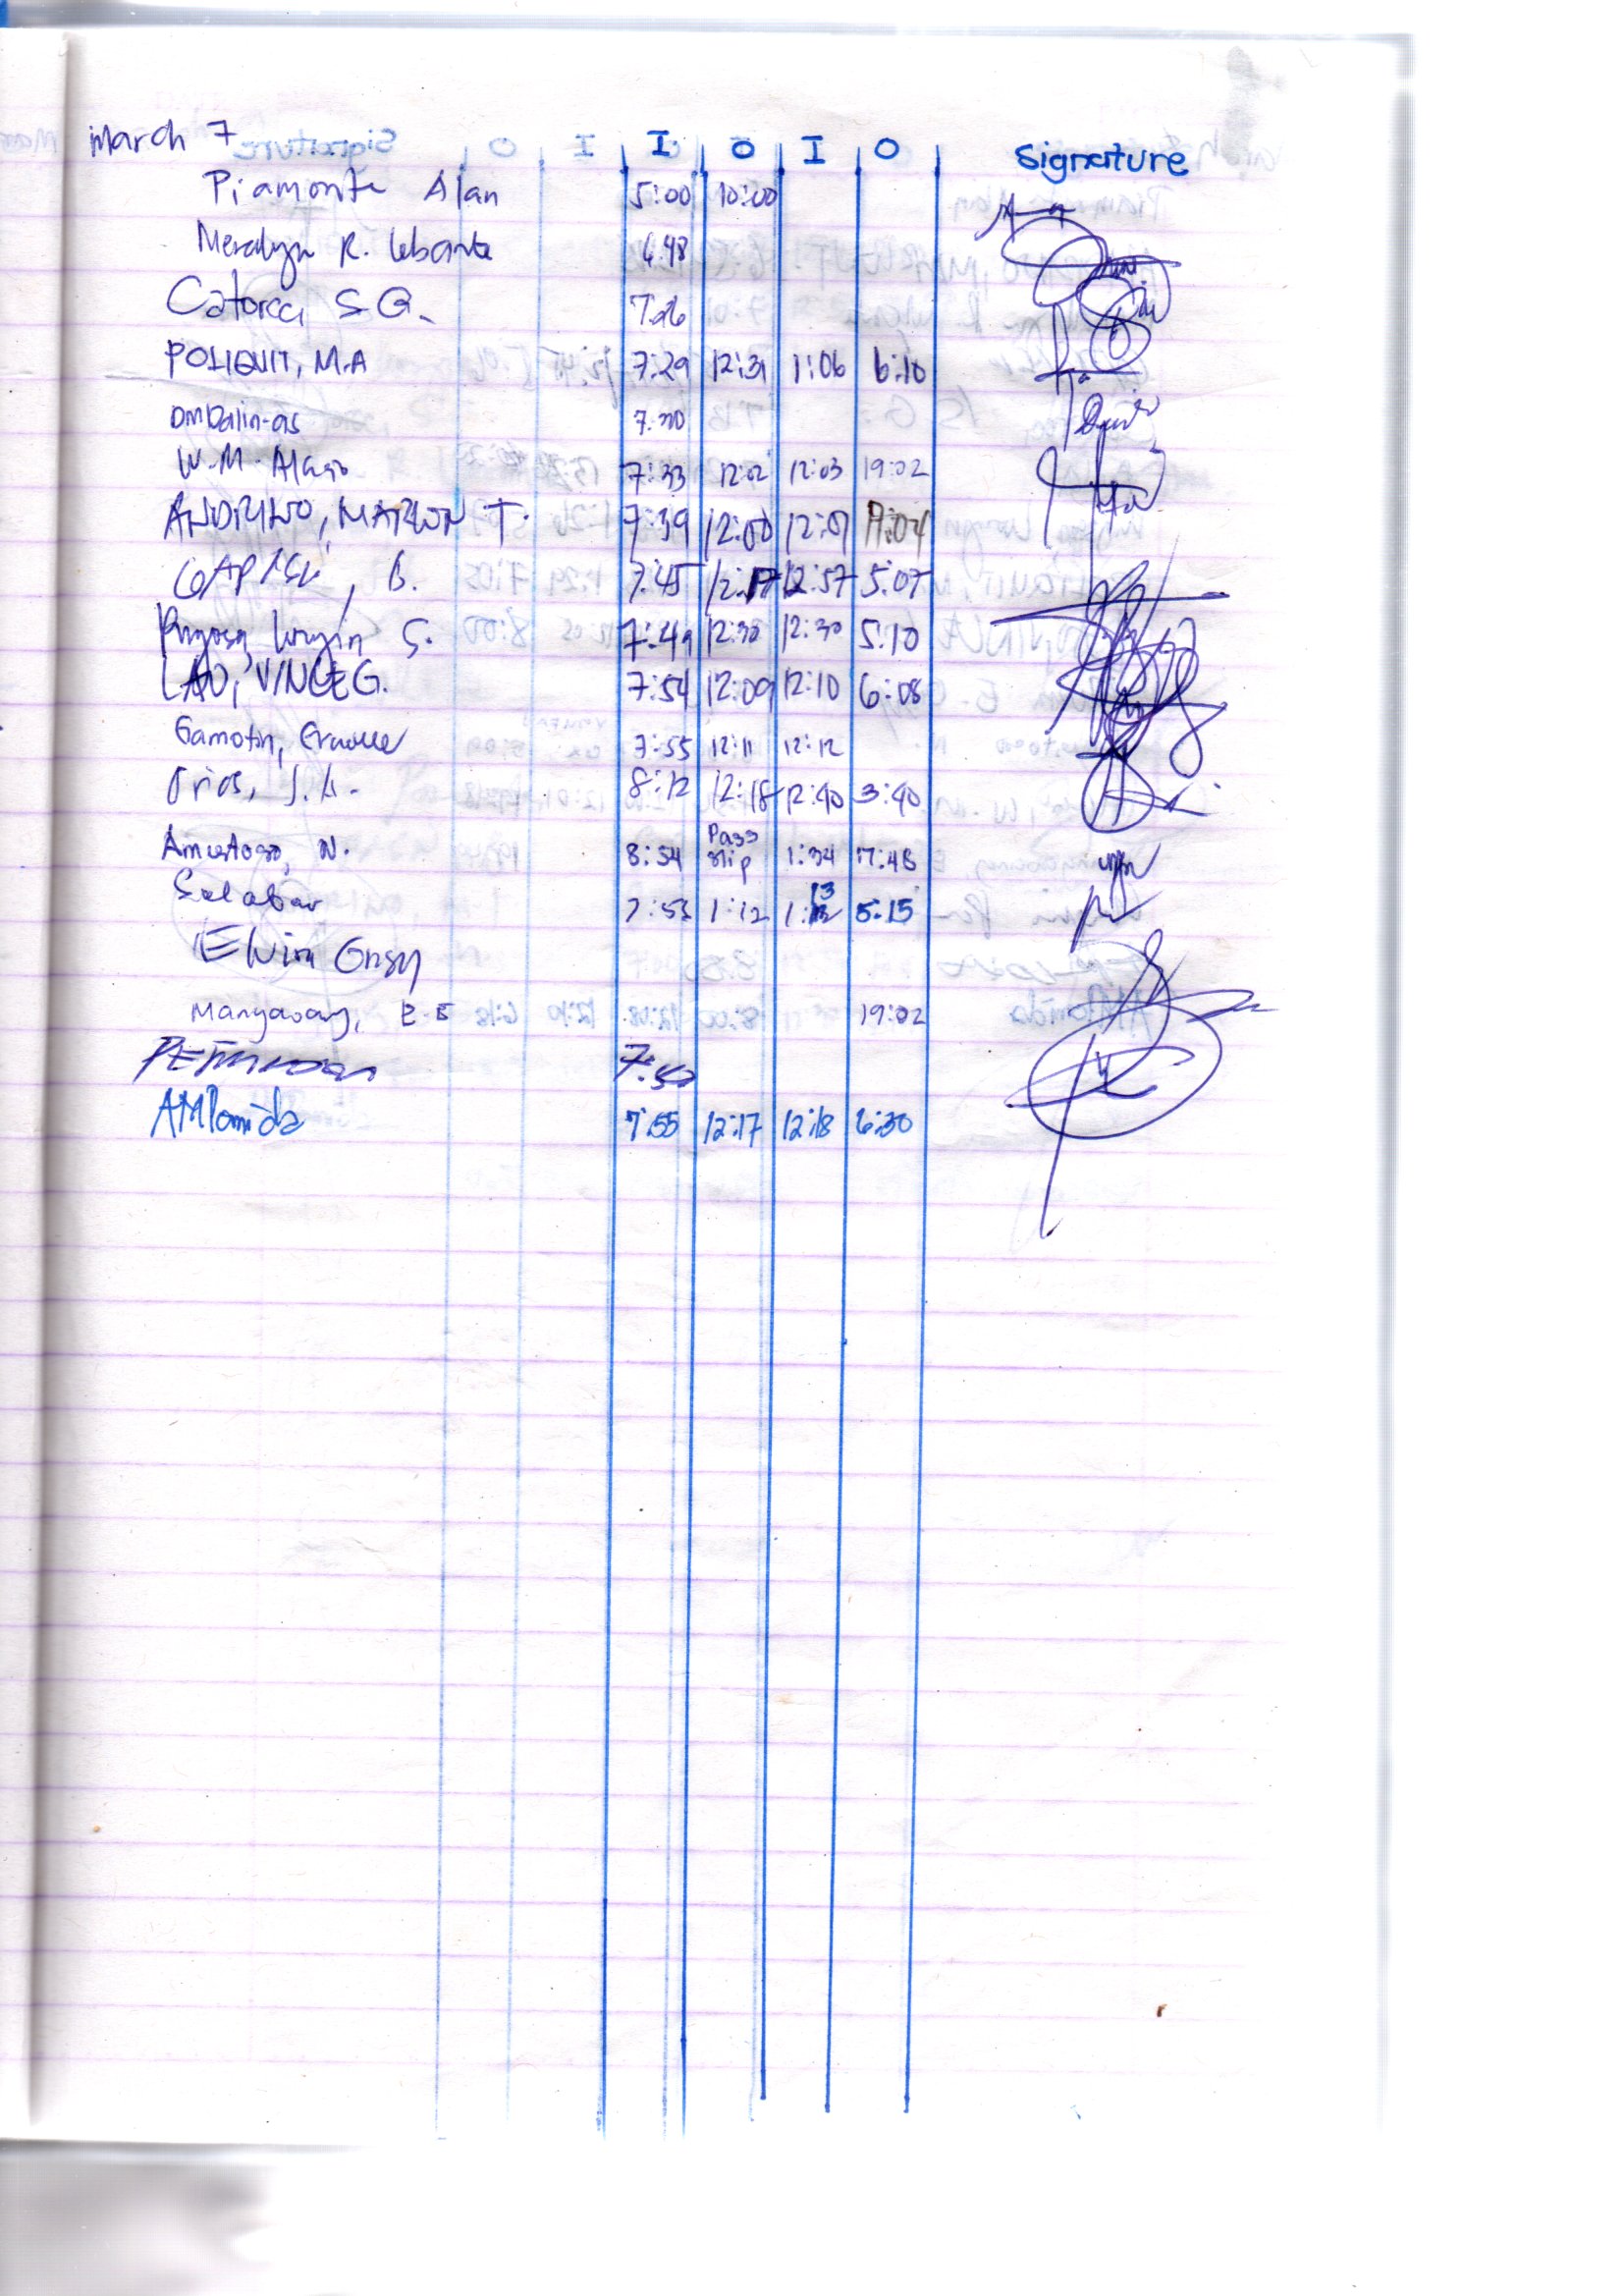 March 7 I O I O Signature
Piamonte Alan 5:00 10:00
R. 6:48
Catorce S G. 7:26
POLIQUIT, M.A 7:29 12:31 1:06 6:10
Ombalin-as 7:30
W.M. 7:33 12:02 12:03 19:02
ANDRINO, MARLON T. 7:39 12:00 12:01
B. 7:45 12:17 12:57 5:07
S. 7:49 12:30 12:30 5:10
LAO, VINCE G. 7:54 12:09 12:10 6:08
Gamotin, 7:55 12:11 12:12
J.A. 8:12 12:18 12:40 3:40
Amistoso, N. 8:54 Pass slip 1:34 7:48
Salabao 7:53 1:12 1:13 5:15
Elvira
Mangaoang, E.E 19:02
7:50
AMLomida 7:55 12:17 12:18 6:30